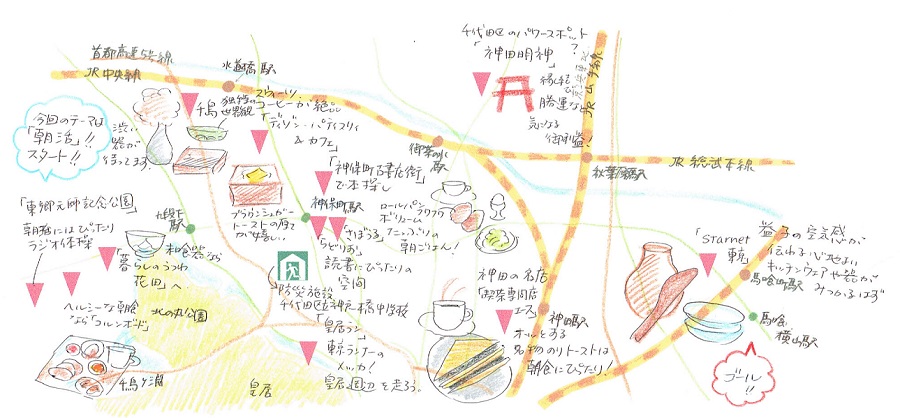 首都高速5号線
JR中央線
水道橋駅
千代田区のパワースポット?
「神田明神」
縁結び
勝運など
気になる
御利益!
今回のテーマは
「朝活」!!
スタート!!
渋い
器が
待ってます
千鳥
独特の
世界観
スイーツ、
コーヒーが絶品
「ディゾン・パティスリィ
&カフェ」
御茶の水
駅
JR総武本線
秋葉原駅
「神保町古書店街」
で本探し
「東郷元帥記念公園」
朝活にはぴったり
ラジオ体操
九段下
駅
和食器なら
「暮らしのうつわ
花田」へ
ブラウンシュガー
トーストの厚さ
が嬉しい
神保町駅
「さぼうる」
「ラドリオ」
読書にぴったりの
空間
ロールパン
フワフワ
ボリューム
たっぷりの
朝ごはん!
「starnet
東京」
益子の空気感が
伝わる心地よい
キッチンウェアや器が
みつかるはず
馬喰町駅
馬喰
横山駅
ゴール
!!
防災施設
千代田区立神田一橋中学校
神田の名店
「喫茶専門店
エース」
神田駅
ホッとする
名物のりトーストは
朝食にぴったり!
ヘルシーな朝食
なら
北の丸公園
千鳥ヶ淵
皇居
「皇居ラン」
東京ランナーの
メッカ!
皇居周辺を走ろう。